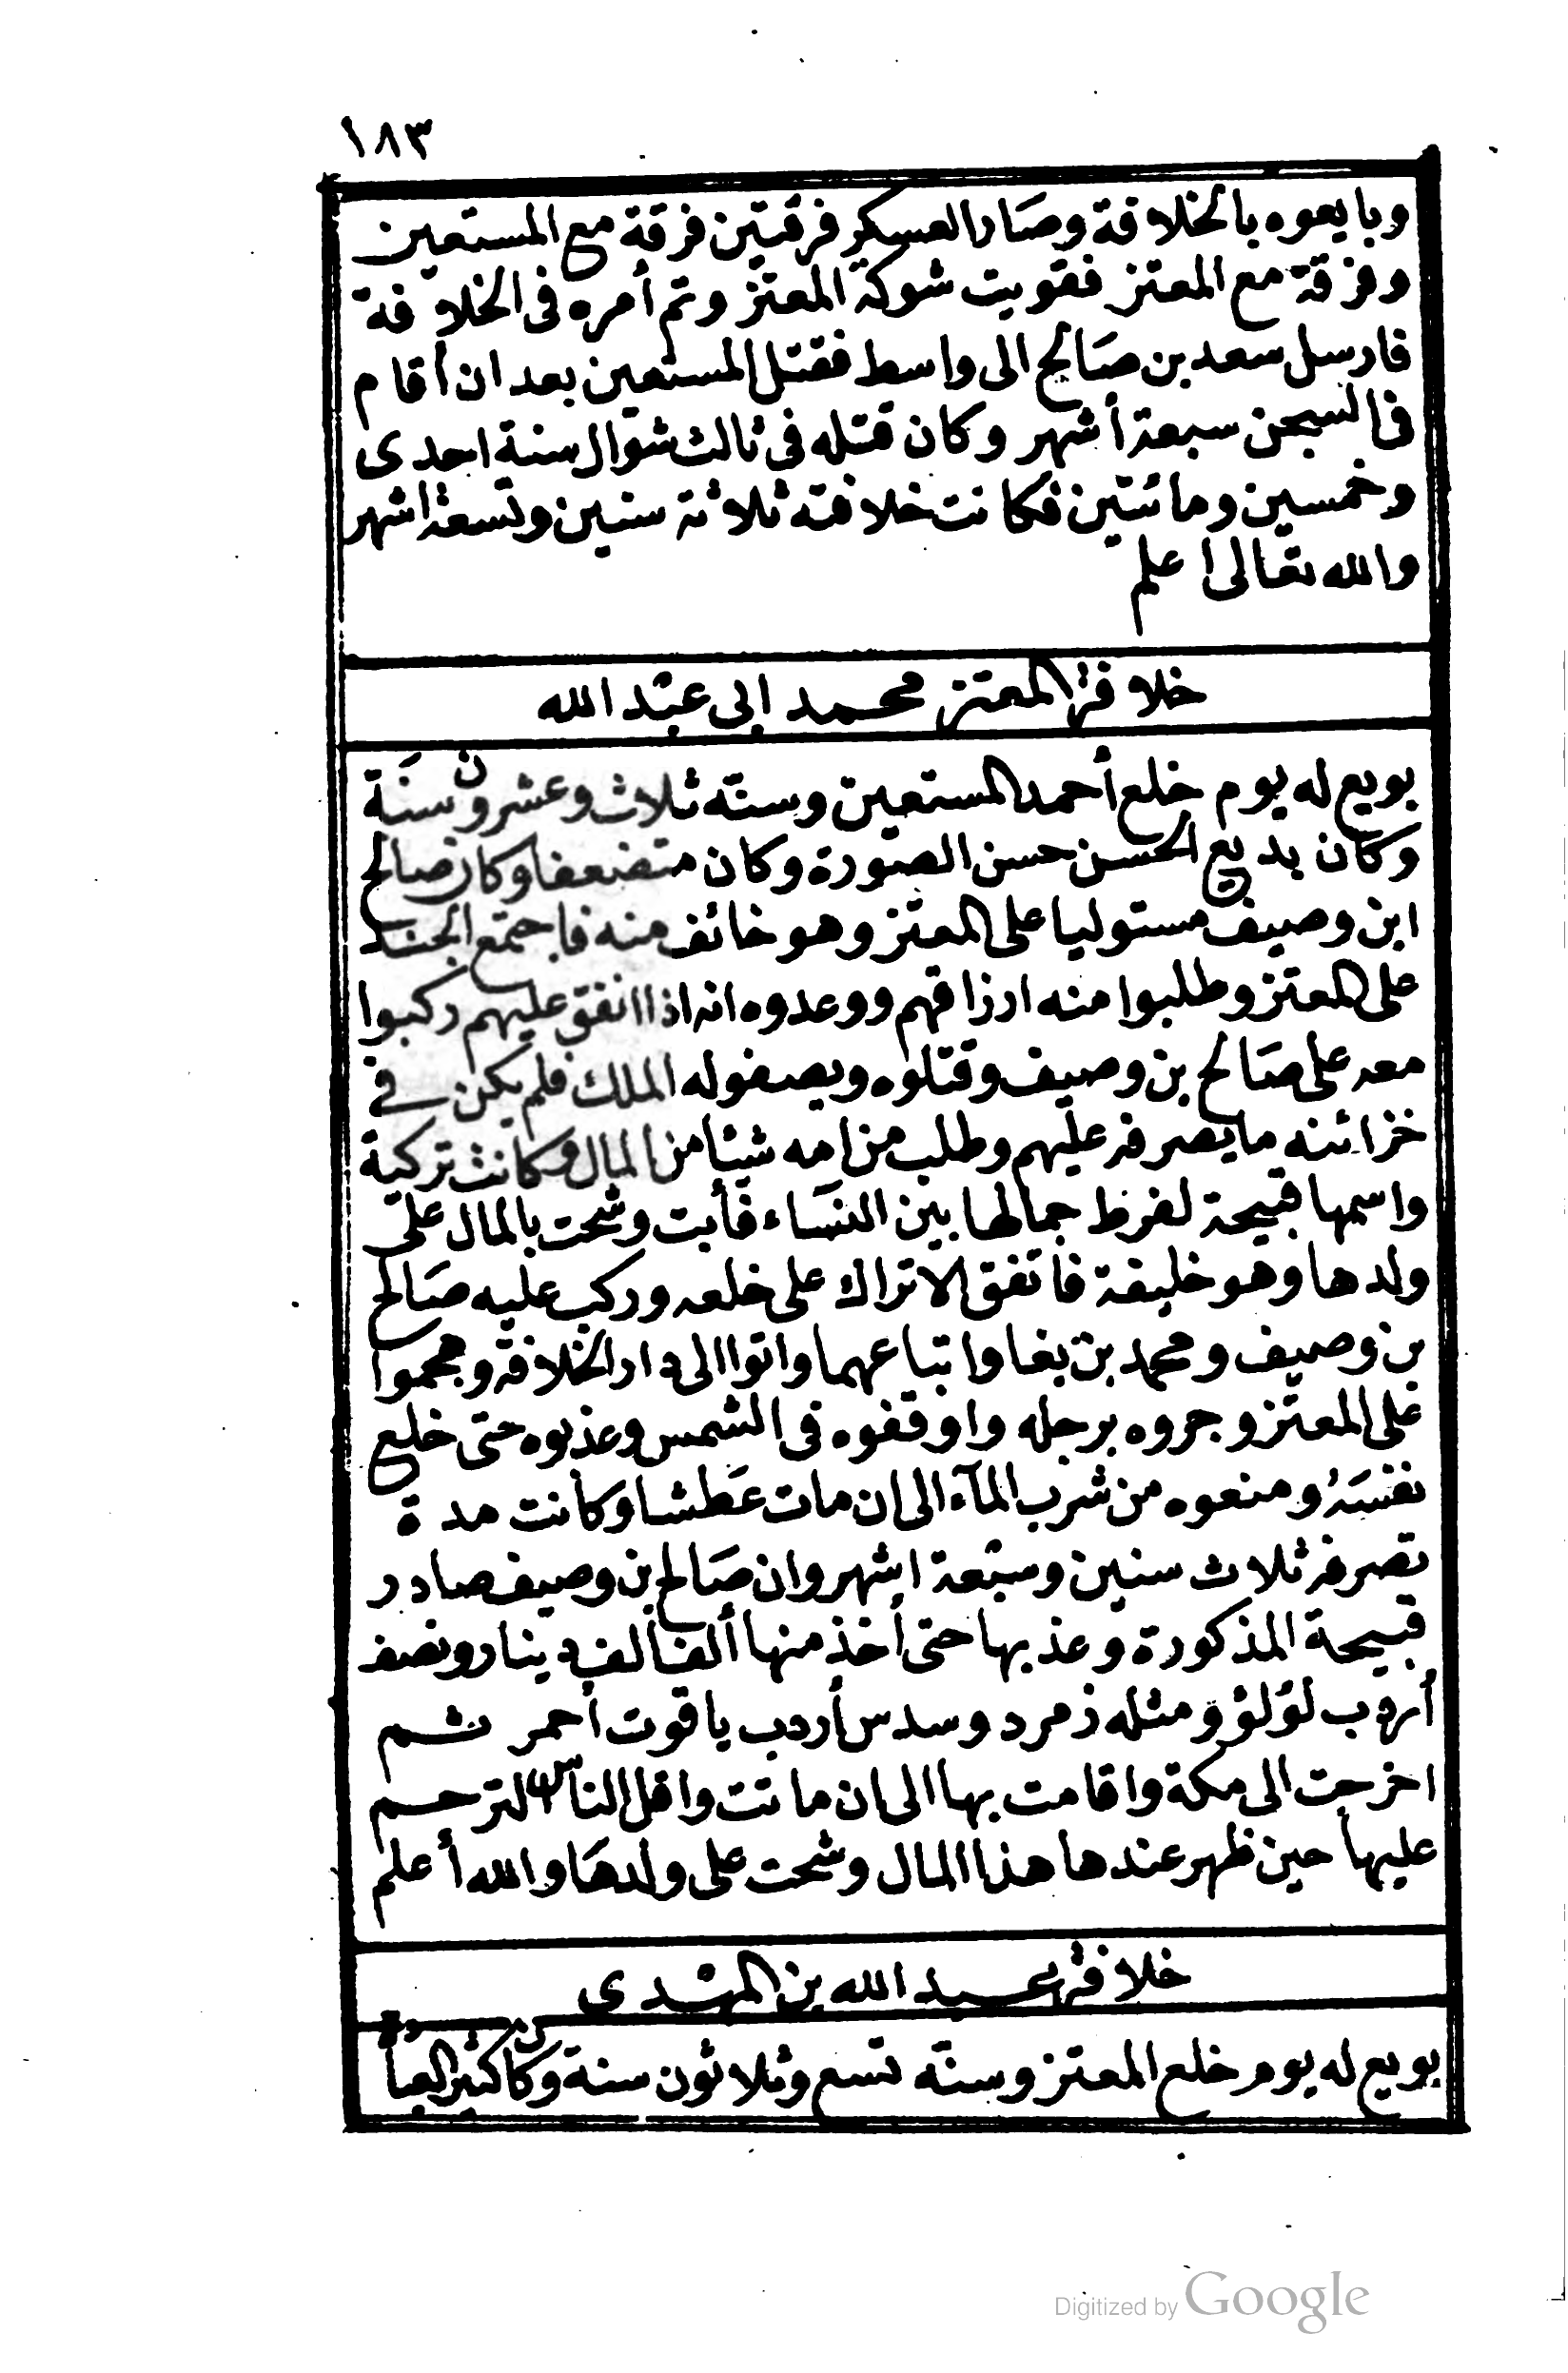 ١٨٣
وبايعوه بالخلافة وصَار العسكر فرقتين فرقة مع المستعين
وفرقة مع المعتز فقويت شوكة المعتز وتم أمره فى الخلافة
فارسل سعد بن صَالح الى واسط فقتل المستعين بعد ان أقام
فى السجن سبعة أشهر وكان قتله فى ثالث شوال سنة احدى
وخمسين ومائتين فكانت خلافته ثلاثة سنين وتسعة اشهر
والله تعالى اعلم
خلافة المعتز محمد ابى عبد الله
بويع له يوم خلع أحمد المستعين وسنّه ثلاث وعشرون سنَة
وكان بديع الحسن حسن الصورة وكان متضعفا وكان صالح
ابن وصيف مستوليا على المعتز وهو خائف منه فاجتمع الجند
على المعتز وطلبوا منه ارزاقهم ووعدوه انه اذا انفق عليهم ركبوا
معه على صَالح بن وصيف وقتلوه ويصفوله الملك فلم يكن فى
خزائنه ما يصرفه عليهم وطلب من امه شيئا من المال وكانت تركية
واسمها قبيحة لفرط جمالها بين النسَاء فأبت وشحت بالمال على
ولدها وهو خليفة فاتفق الاتراك على خلعه وركب عليه صَالح
بن وصيف ومحمد بن بغا واتباعهما واتوا الى دار الخلافة وهجموا
على المعتز وجروه برجله واوقفوه فى الشمس وعذبوه حتى خلع
نفسَهُ ومنعوه من شرب المآء الى ان مات عَطشا وكانت مدة
تصرفه ثلاث سنين وسبْعة اشهر وان صَالح بن وصيف صادر
قبيحة المذكورة وعذبها حتى أخذ منها ألف ألف دينار ونصف
أردب لؤلؤ ومثله زمرد وسدس أردب ياقوت أحمر ثم
اخرجت الى مكة واقامت بها الى ان ماتت واقل الناس الترحم
عليها حين ظهر عندها هذا المال وشحت على ولدهَا والله أعلم
خلافة عبد الله بن المهتدى
بويع له يوم خلع المعتز وسنّه تسع وثلاثون سنة وكان كثير العبادة
Digitized by Google